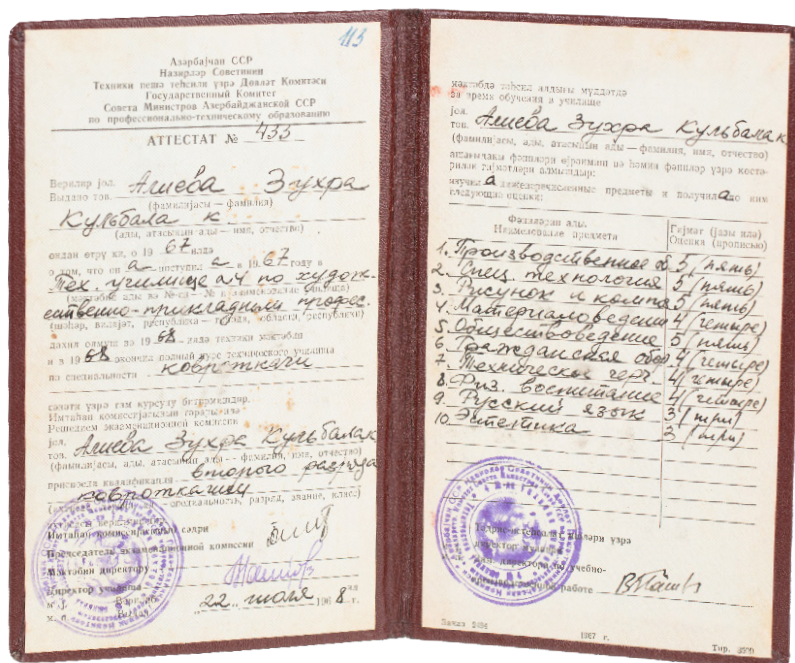 113
Азәрбајҹан ССР
Назирләр Советинин
Техники пешә тәһсили үзрә Дөвләт Комитәси
Государственный Комитет
Совета Министров Азербайджанской ССР
по профессионально-техническому образованию
АТТЕСТАТ № 433
Верилир јол. Алиева Зухра
Выдано тов. (фамилијасы — фамилия)
Кульбала к
(ады, атасынын ады — имя, отчество)
ондан өтрү ки, о 1967 илдә
о том, что он а поступил а в 1967 году в
Тех. училище по худож-
ественно-прикладным професс.
(шәһәр, вилајәт, республика — города, области, республики)
дахил олмуш вә 1968 илдә техники мәктәбин
и в 1968 окончил полный курс технического училища
по специальности ковроткачи
Имтаһан комиссијасынын гәрарынә
Решением экзаменационной комиссии
јол.
тов. Алиева Зухра Кульбалак
(фамилијасы, ады, атасынын ады — фамилия, имя, отчество)
присвоена квалификация второго разряда
ковроткачи
специальность, разряд, звание, класс)
Имтаһан комиссијасынын сәдри
Председатель экзаменационной комиссии
Мәктәбин директору
Директор училища
22 июля 1968 г.
мәктәбдә тәһсил алдығы мүддәтдә
за время обучения в училище
јол.
тов. Алиева Зухра Кульбалак
(фамилијасы, ады, атасынын ады — фамилия, имя, отчество)
ашағыдакы фәнләри өјрәнмиш вә һәмин фәнләр үзрә көстә-
рилән гијмәтләри алмышдыр:
изучила нижеперечисленные предметы и получила по ним
следующие оценки:
Фәнләрин ады. Гијмәт (јазы илә)
Наименование предмета Оценка (прописью)
1. Производственное об 5 (пять)
2. Спец. технология 5 (пять)
3. Рисунок и компа 5 (пять)
4. Материаловедении 4 (четыре)
5. Обществоведение 5 (пять)
6. Гражданская обор 4 (четыре)
7. Техническое черч. 4 (четыре)
8. Физ. воспитание 4 (четыре)
9. Русский язык 3 (три)
10. Эстетика 3 (три)
Тәдрис-истеһсалат ишләри үзрә
директор мүавини
Зам. директора по учебно-
производственной работе
1967 г.